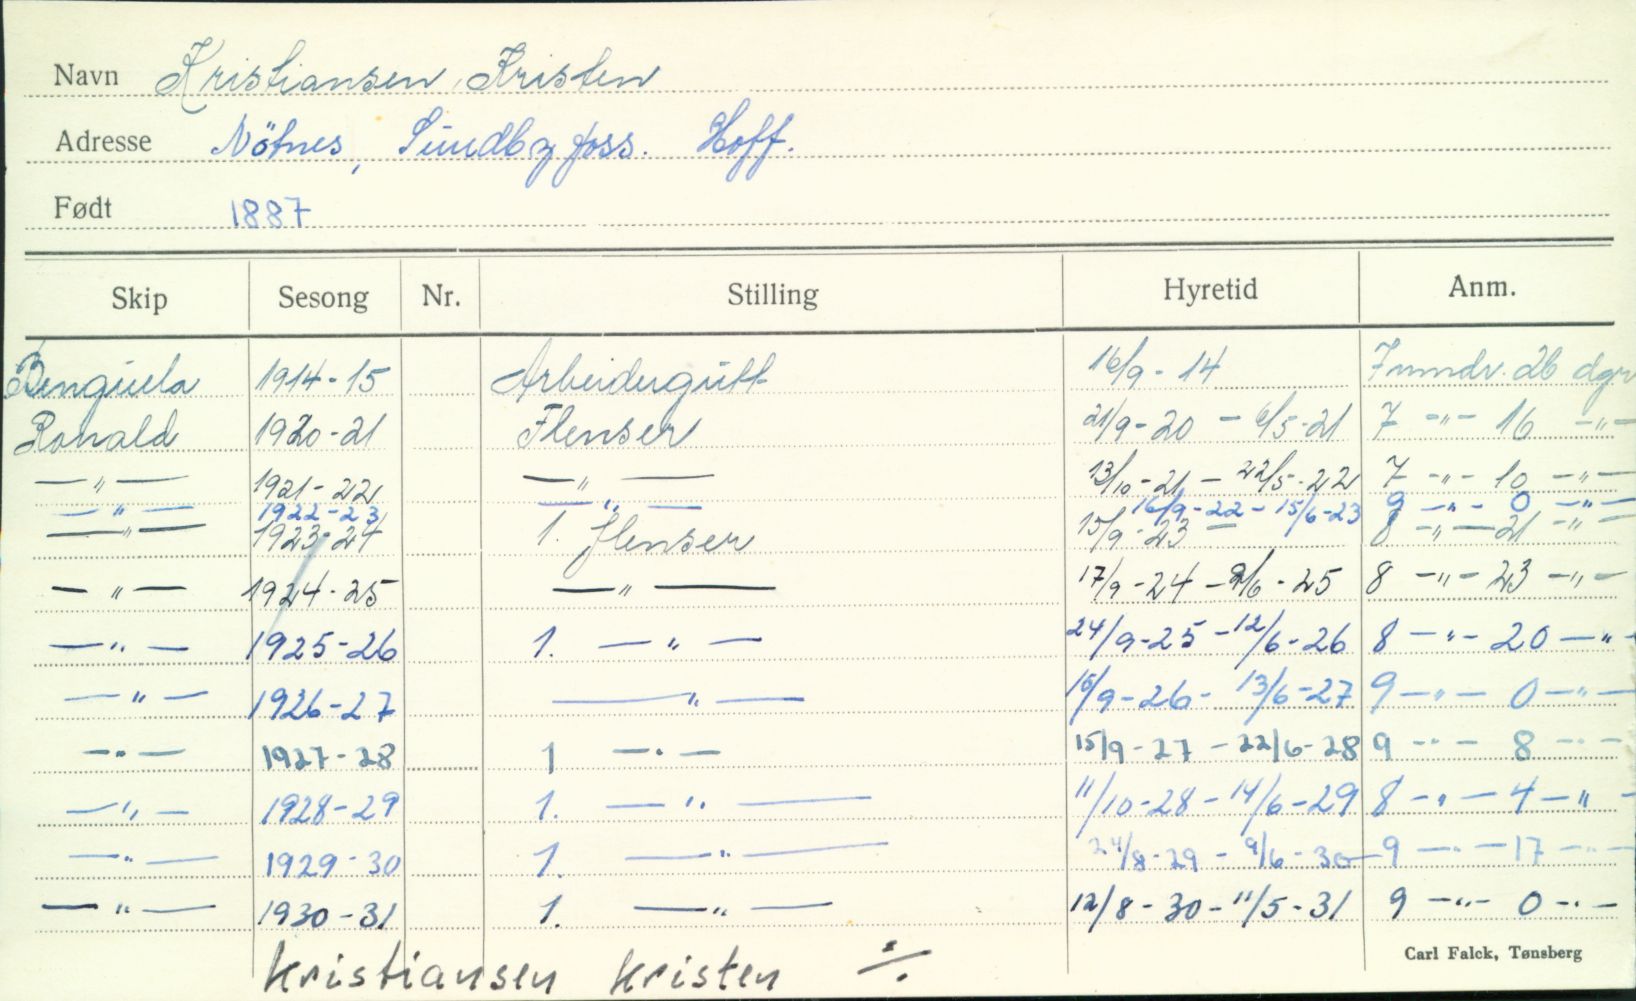 Navn Kristiansen, Kristen
Adresse Nötnes, Sundbyfoss. Hoff.
Født 1887
Skip Sesong Nr. Stilling Hyretid Anm.
Benguela 1914-15 Arbeidergutt 16/9-14 7 mndr. 26 dgr
Ronald 1920-21 Flenser 21/9-20 - 6/5-21 7 -"- 16 -"-
-"- 1921-22 -"- 13/10-21 - 22/5-22 7 -"- 10 -"-
-"- 1922-23 -"- 16/9-22 - 15/6-23 9 -"- 0 -"-
-"- 1923-24 1. Flenser 15/9-23 - 8 -"- 21 -"-
-"- 1924-25 -"- 17/9-24 - 9/6-25 8 -"- 23 -"-
-"- 1925-26 1. -"- 24/9-25 - 12/6-26 8 -"- 20 -"-
-"- 1926-27 -"- 15/9-26 - 13/6-27 9 -"- 0 -"-
-"- 1927-28 1 -"- 15/9-27 - 22/6-28 9 -"- 8 -"-
-"- 1928-29 1. -"- 11/10-28 - 14/6-29 8 -"- 4 -"-
-"- 1929-30 1. -"- 24/8-29 - 9/6-30 9 -"- 17 -"-
-"- 1930-31 1. -"- 12/8-30 - 11/5-31 9 -"- 0 -"-
Kristiansen Kristen ./.
Carl Falck, Tønsberg